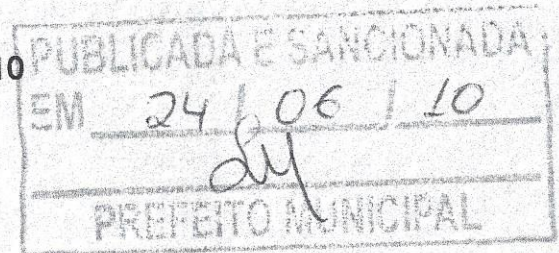 10
PUBLICADA E SANCIONADA
EM 24 / 06 / 10
PREFEITO MUNICIPAL